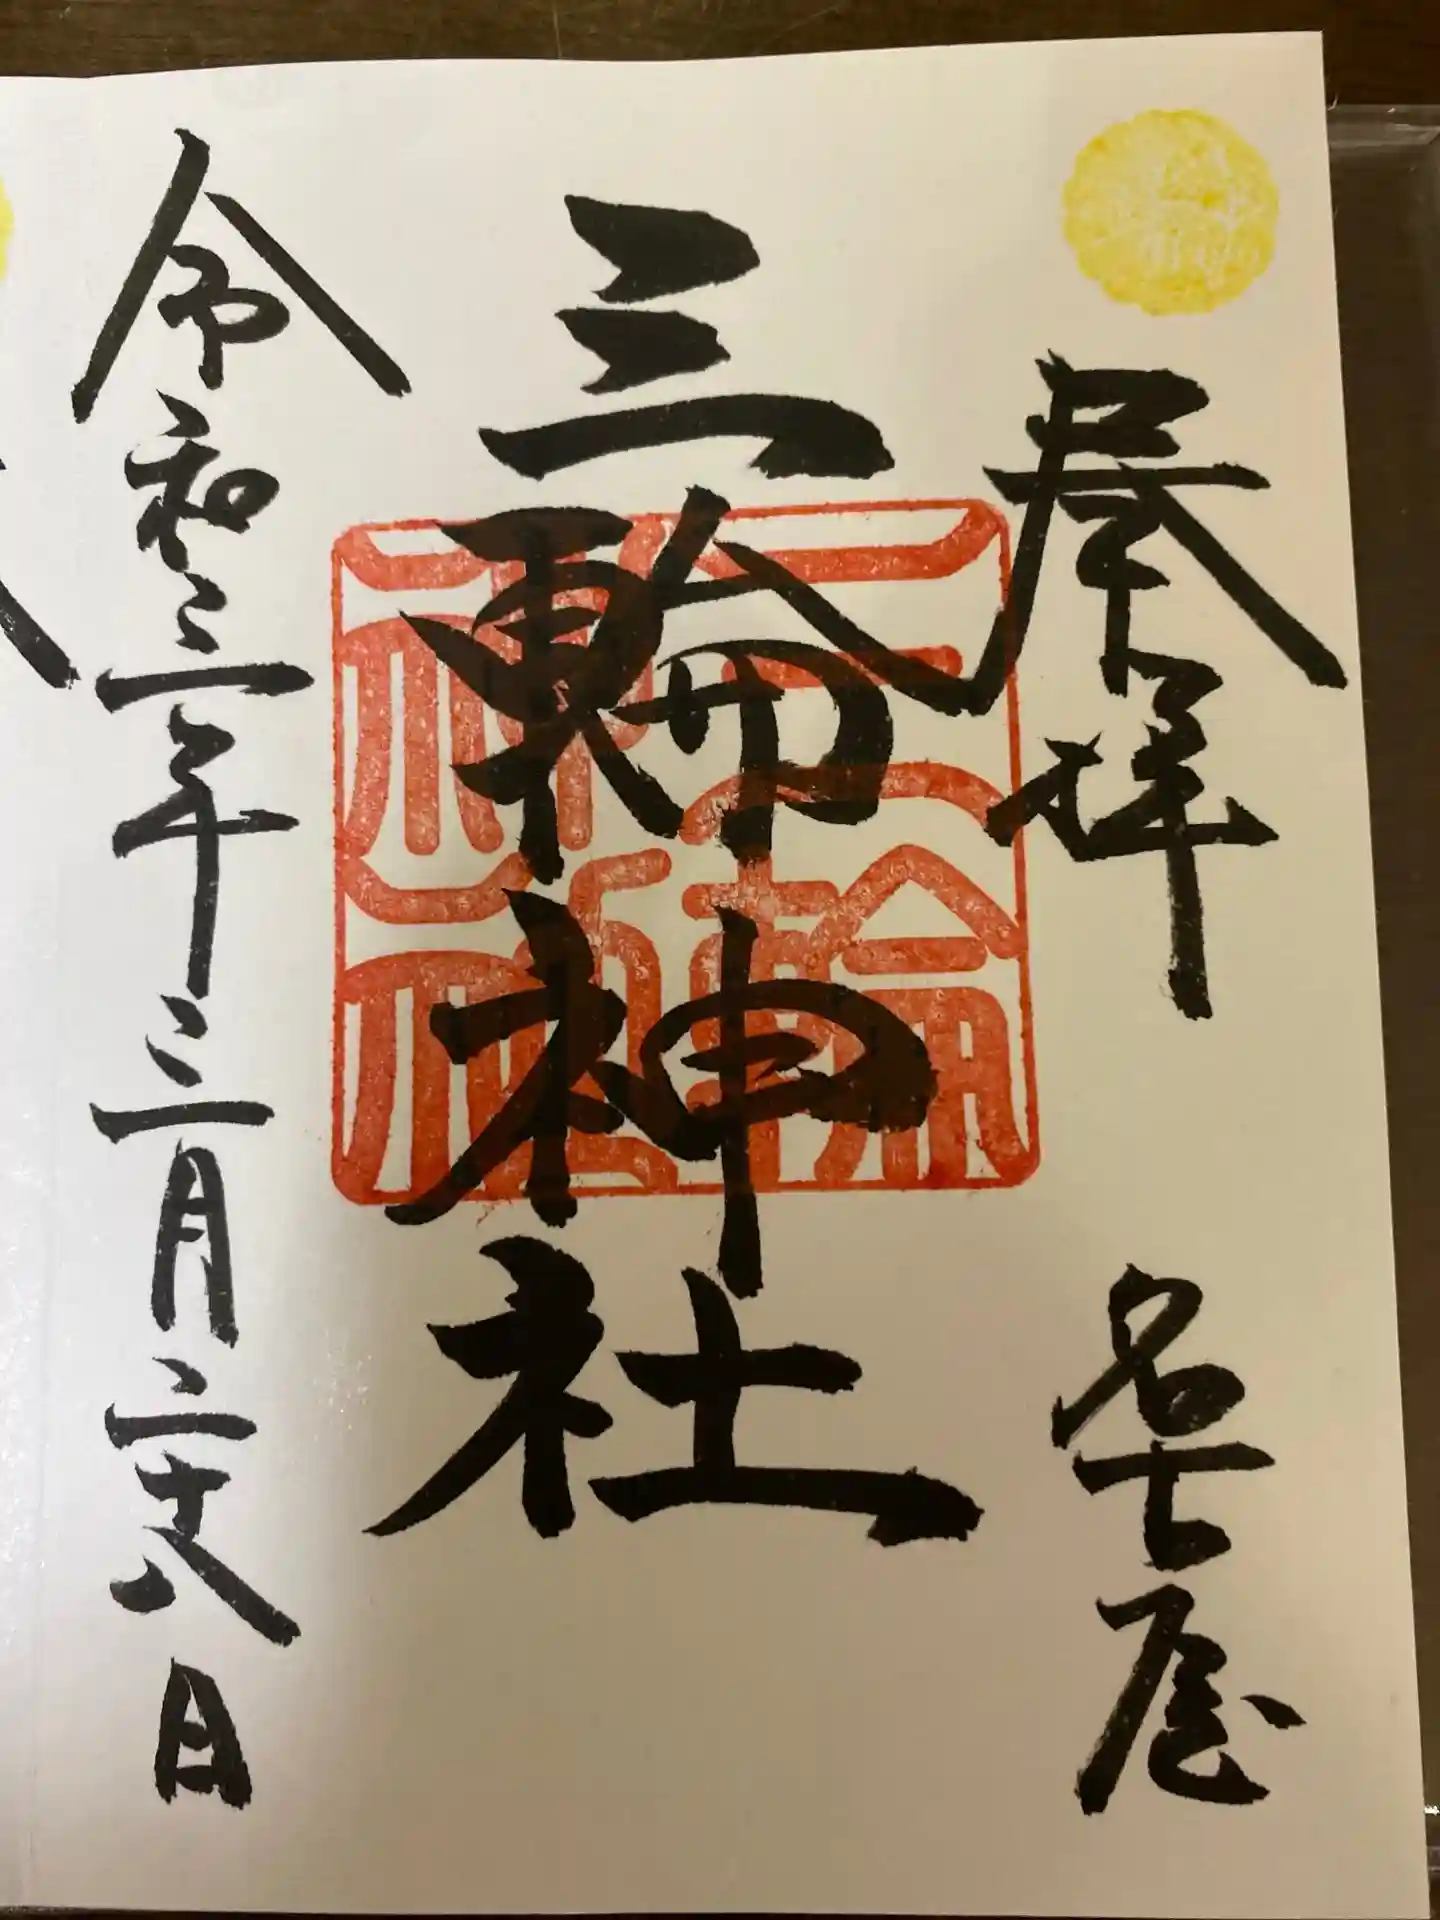 奉拝 名古屋
三輪神社
三輪神社
令和三年三月二十八日